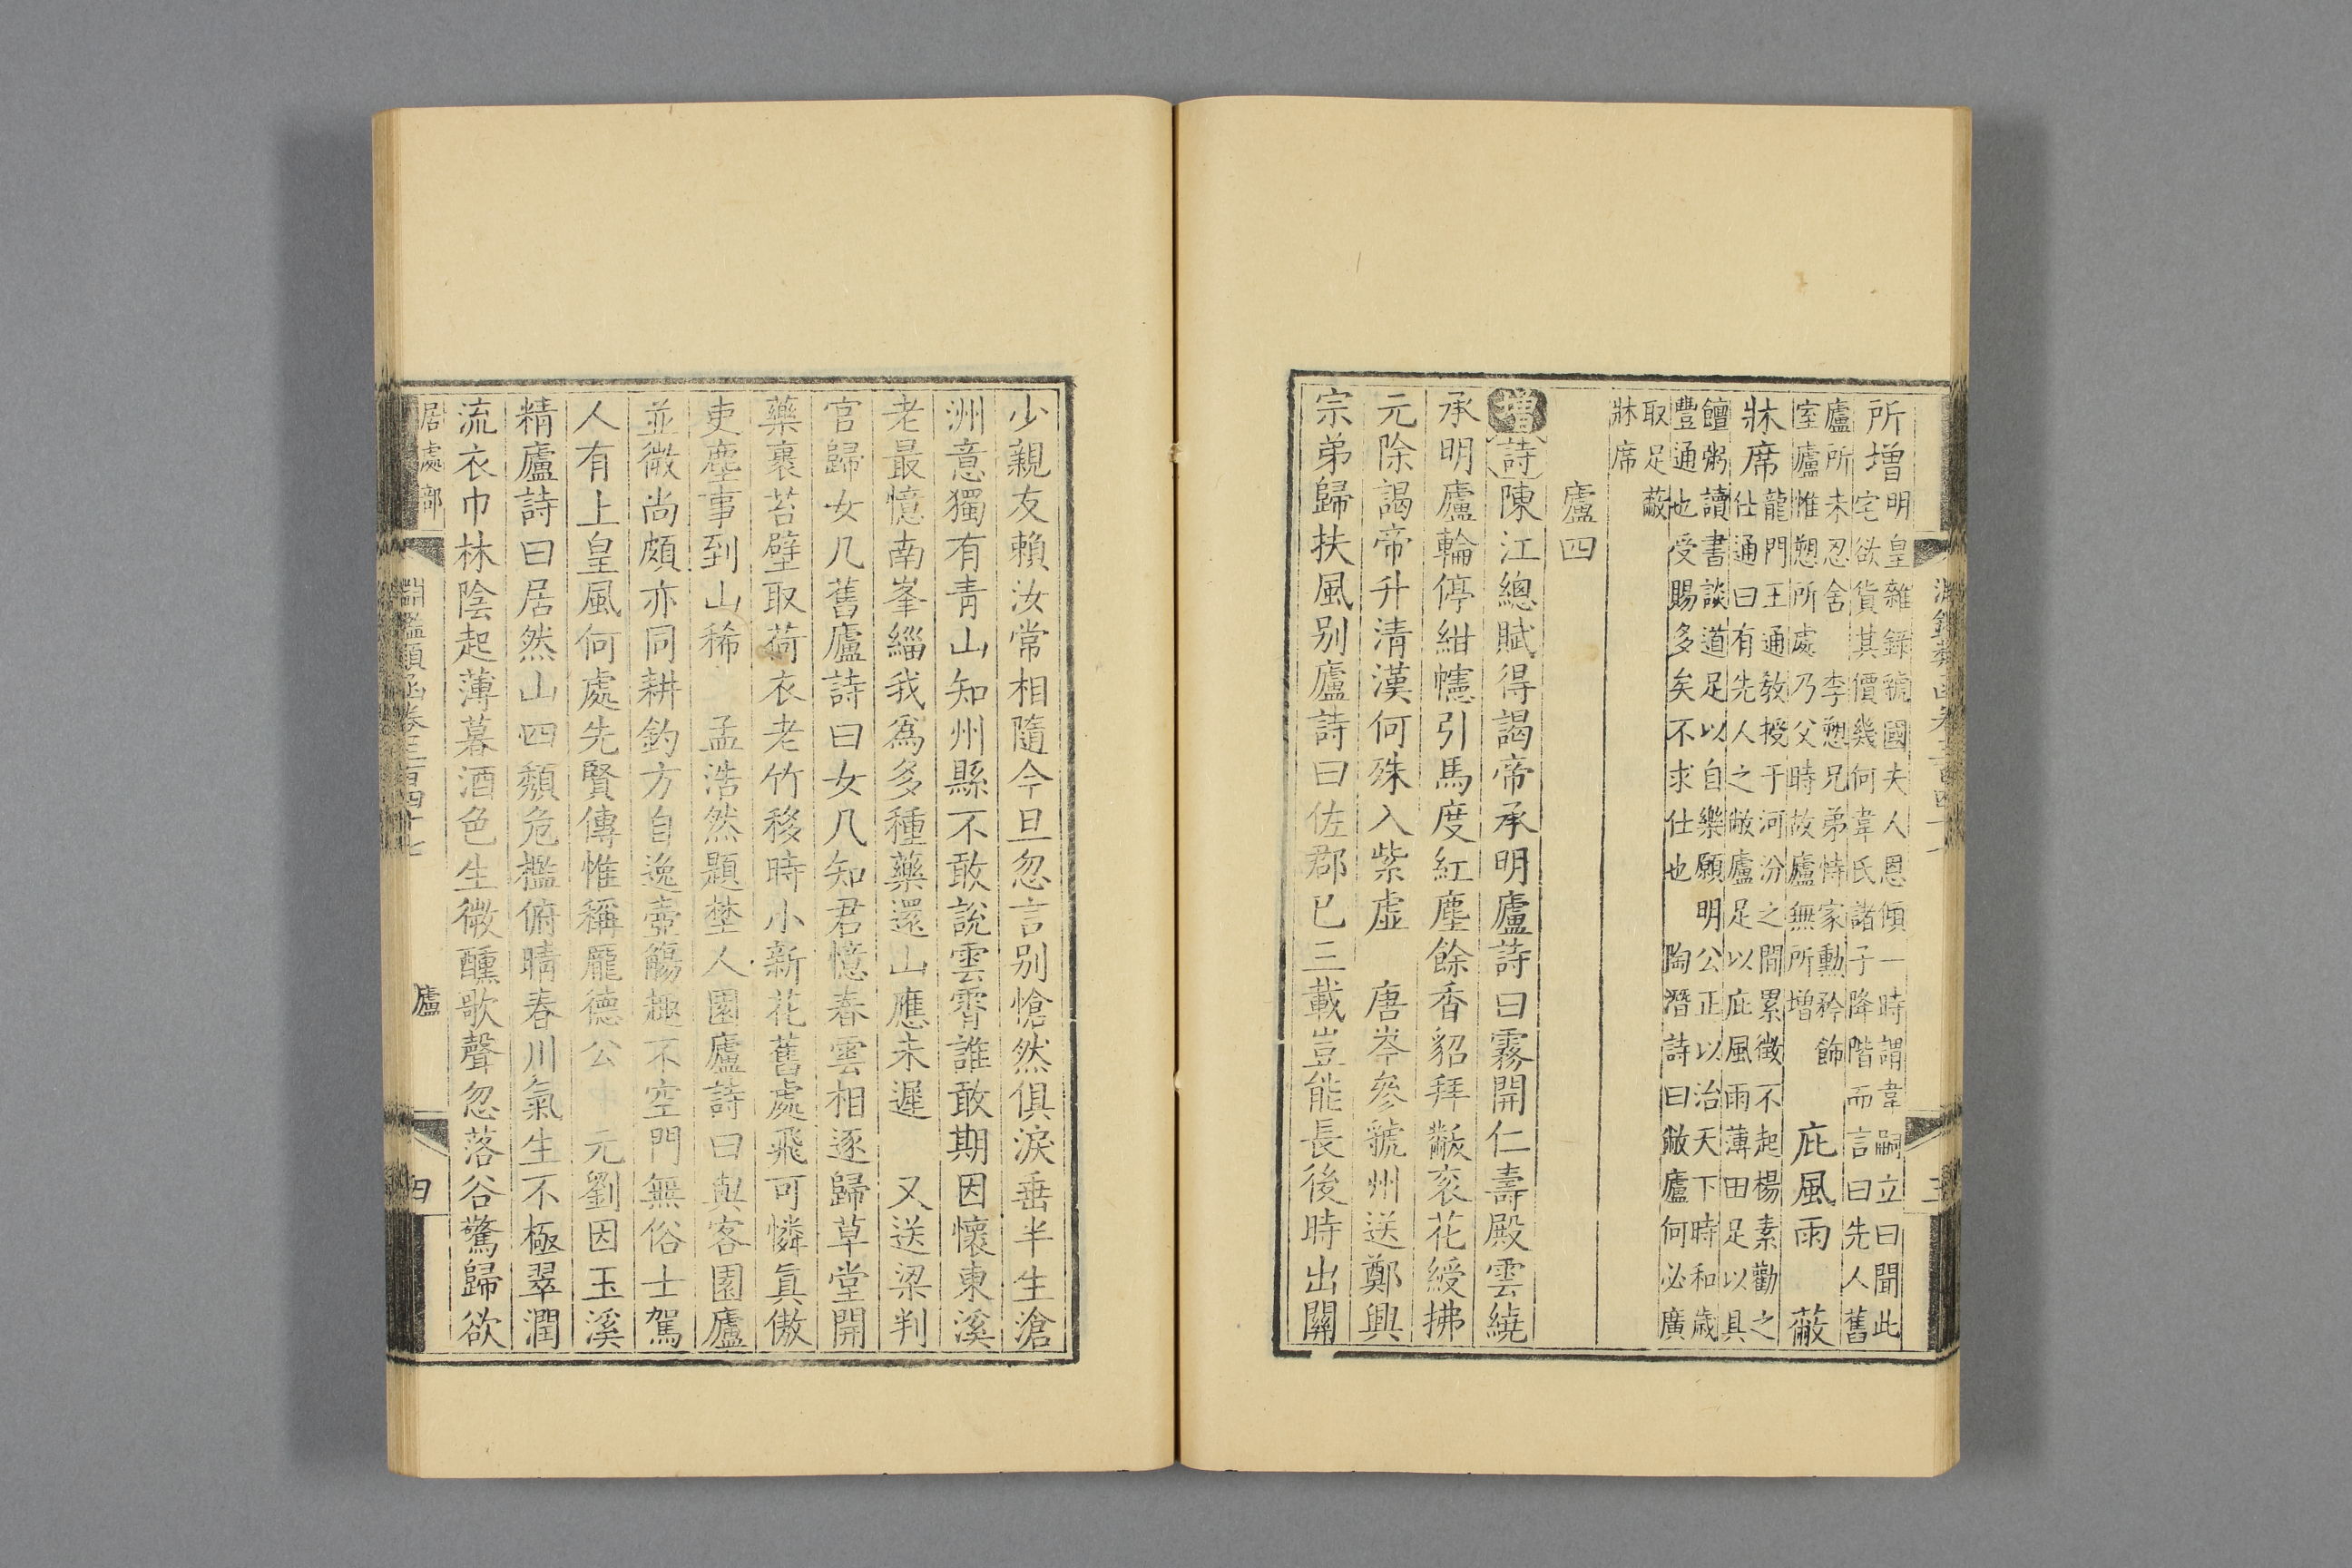 淵鑑類函卷三百四十七
所增明皇雜錄虢國夫人恩傾一時謂韋嗣立曰聞此
宅欲貨其價幾何韋氏諸子降階而言曰先人舊
廬所未忍舍 李愬兄弟恃家勳矜飾
室廬惟愬所處乃父時故廬無所增 庇風雨 蔽
牀席龍門王通教授于河汾之間累徵不起楊素勸之
仕通曰有先人之敝廬足以庇風雨薄田足以具
饘粥讀書談道足以自樂願明公正以治天下時和歲
豐通也受賜多矣不求仕也 陶潛詩曰敝廬何必廣
取足蔽
牀席
廬四
增詩陳江總賦得謁帝承明廬詩曰霧開仁壽殿雲繞
承明廬輪停紺幰引馬度紅塵餘香貂拜黻衮花綬拂
元除謁帝升清漢何殊入紫虛 唐岑參虢州送鄭興
宗弟歸扶風别廬詩曰佐郡已三載豈能長後時出關
少親友賴汝常相隨今旦忽言别愴然俱淚垂半生滄
洲意獨有青山知州縣不敢說雲霄誰敢期因懷東溪
老最憶南峯緇我為多種藥還山應未遲 又送梁判
官歸女几舊廬詩曰女几知君憶春雲相逐歸草堂開
藥裹苔壁取荷衣老竹移時小新花舊處飛可憐真傲
吏塵事到山稀 孟浩然題埜人園廬詩曰與客園廬
並微尚頗亦同耕釣方自逸壺觴趣不空門無俗士駕
人有上皇風何處先賢傳惟稱龐德公 元劉因玉溪
精廬詩曰居然山四頹危檻俯晴春川氣生不極翠潤
流衣巾林陰起薄暮酒色生微醺歌聲忽落谷驚歸欲
居處部
淵鑑類函卷三百四十七
廬
四